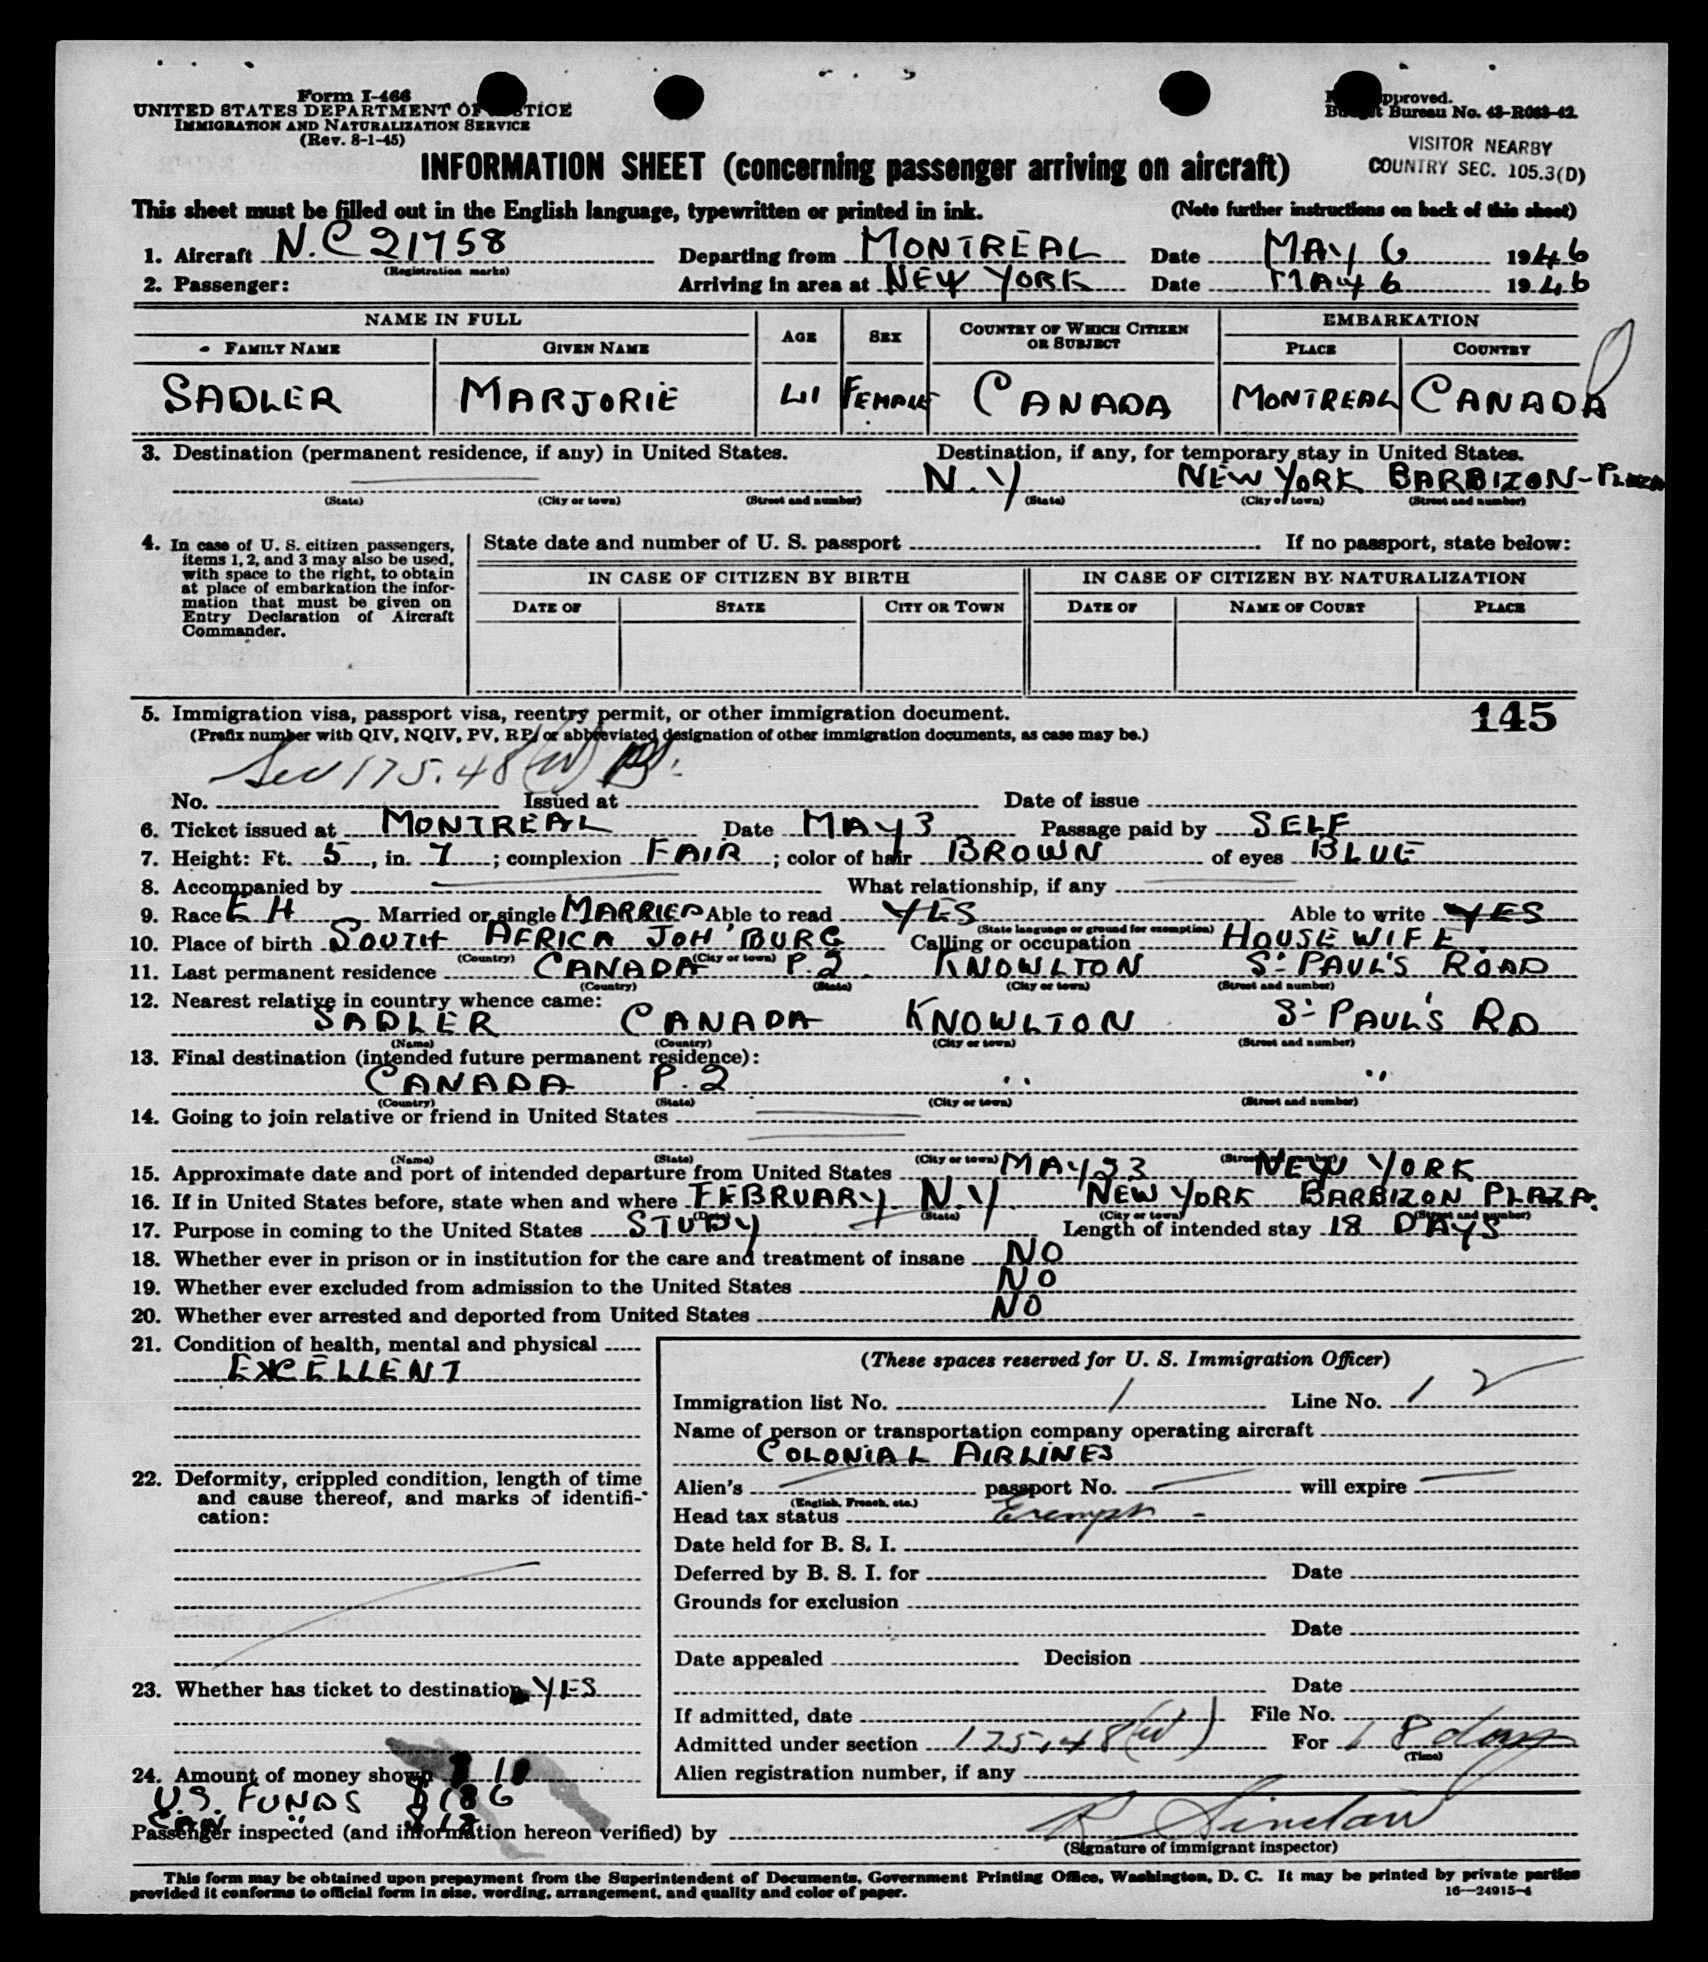 Form I-466
UNITED STATES DEPARTMENT OF JUSTICE
IMMIGRATION AND NATURALIZATION SERVICE
(Rev. 8-1-45)
approved.
Budget Bureau No. 43-R063-42.
VISITOR NEARBY
COUNTRY SEC. 105.3(D)
INFORMATION SHEET (concerning passenger arriving on aircraft)
This sheet must be filled out in the English language, typewritten or printed in ink. (Note further instructions on back of this sheet)
1. Aircraft N.C 21758 Departing from MONTREAL Date MAY 6 1946
(Registration marks)
2. Passenger: Arriving in area at NEW YORK Date MAY 6 1946
NAME IN FULL AGE SEX COUNTRY OF WHICH CITIZEN OR SUBJECT EMBARKATION
FAMILY NAME GIVEN NAME PLACE COUNTRY
SADLER MARJORIE 41 FEMALE CANADA MONTREAL CANADA
3. Destination (permanent residence, if any) in United States. Destination, if any, for temporary stay in United States.
N.Y NEW YORK BARBIZON-PLAZA
(State) (City or town) (Street and number) (State) (City or town) (Street and number)
4. In case of U. S. citizen passengers, items 1, 2, and 3 may also be used, with space to the right, to obtain at place of embarkation the information that must be given on Entry Declaration of Aircraft Commander.
State date and number of U. S. passport If no passport, state below:
IN CASE OF CITIZEN BY BIRTH IN CASE OF CITIZEN BY NATURALIZATION
DATE OF STATE CITY OR TOWN DATE OF NAME OF COURT PLACE
5. Immigration visa, passport visa, reentry permit, or other immigration document. 145
(Prefix number with QIV, NQIV, PV, RP, or abbreviated designation of other immigration documents, as case may be.)
Sec 175.48
No. Issued at Date of issue
6. Ticket issued at MONTREAL Date MAY 3 Passage paid by SELF
7. Height: Ft. 5, in. 7; complexion FAIR; color of hair BROWN of eyes BLUE
8. Accompanied by What relationship, if any
9. Race E H Married or single MARRIED Able to read YES Able to write YES
(State language or ground for exemption)
10. Place of birth SOUTH AFRICA JOH'BURG Calling or occupation HOUSEWIFE.
(Country) (City or town)
11. Last permanent residence CANADA P.Q KNOWLTON ST PAUL'S ROAD
(Country) (State) (City or town) (Street and number)
12. Nearest relative in country whence came:
SADLER CANADA KNOWLTON ST PAUL'S RD
(Name) (Country) (City or town) (Street and number)
13. Final destination (intended future permanent residence):
CANADA P.Q " "
(Country) (State) (City or town) (Street and number)
14. Going to join relative or friend in United States
(Name) (State) (City or town) (Street and number)
15. Approximate date and port of intended departure from United States MAY 23 NEW YORK
16. If in United States before, state when and where FEBRUARY N.Y. NEW YORK BARBIZON PLAZA.
(Date) (State) (City or town) (Street and number)
17. Purpose in coming to the United States STUDY Length of intended stay 18 DAYS
18. Whether ever in prison or in institution for the care and treatment of insane NO
19. Whether ever excluded from admission to the United States NO
20. Whether ever arrested and deported from United States NO
21. Condition of health, mental and physical
EXCELLENT
22. Deformity, crippled condition, length of time and cause thereof, and marks of identification:
23. Whether has ticket to destination YES
24. Amount of money shown
U.S. FUNDS $186
CAN " $12
(These spaces reserved for U. S. Immigration Officer)
Immigration list No. 1 Line No. 12
Name of person or transportation company operating aircraft
COLONIAL AIRLINES
Alien's passport No. will expire
(English, French, etc.)
Head tax status Exempt -
Date held for B. S. I.
Deferred by B. S. I. for Date
Grounds for exclusion
Date
Date appealed Decision
Date
If admitted, date File No.
Admitted under section 175.48 For 18 days
(Time)
Alien registration number, if any
Passenger inspected (and information hereon verified) by R Sinclair
(Signature of immigrant inspector)
This form may be obtained upon prepayment from the Superintendent of Documents, Government Printing Office, Washington, D. C. It may be printed by private parties
provided it conforms to official form in size, wording, arrangement, and quality and color of paper. 16—24915-4